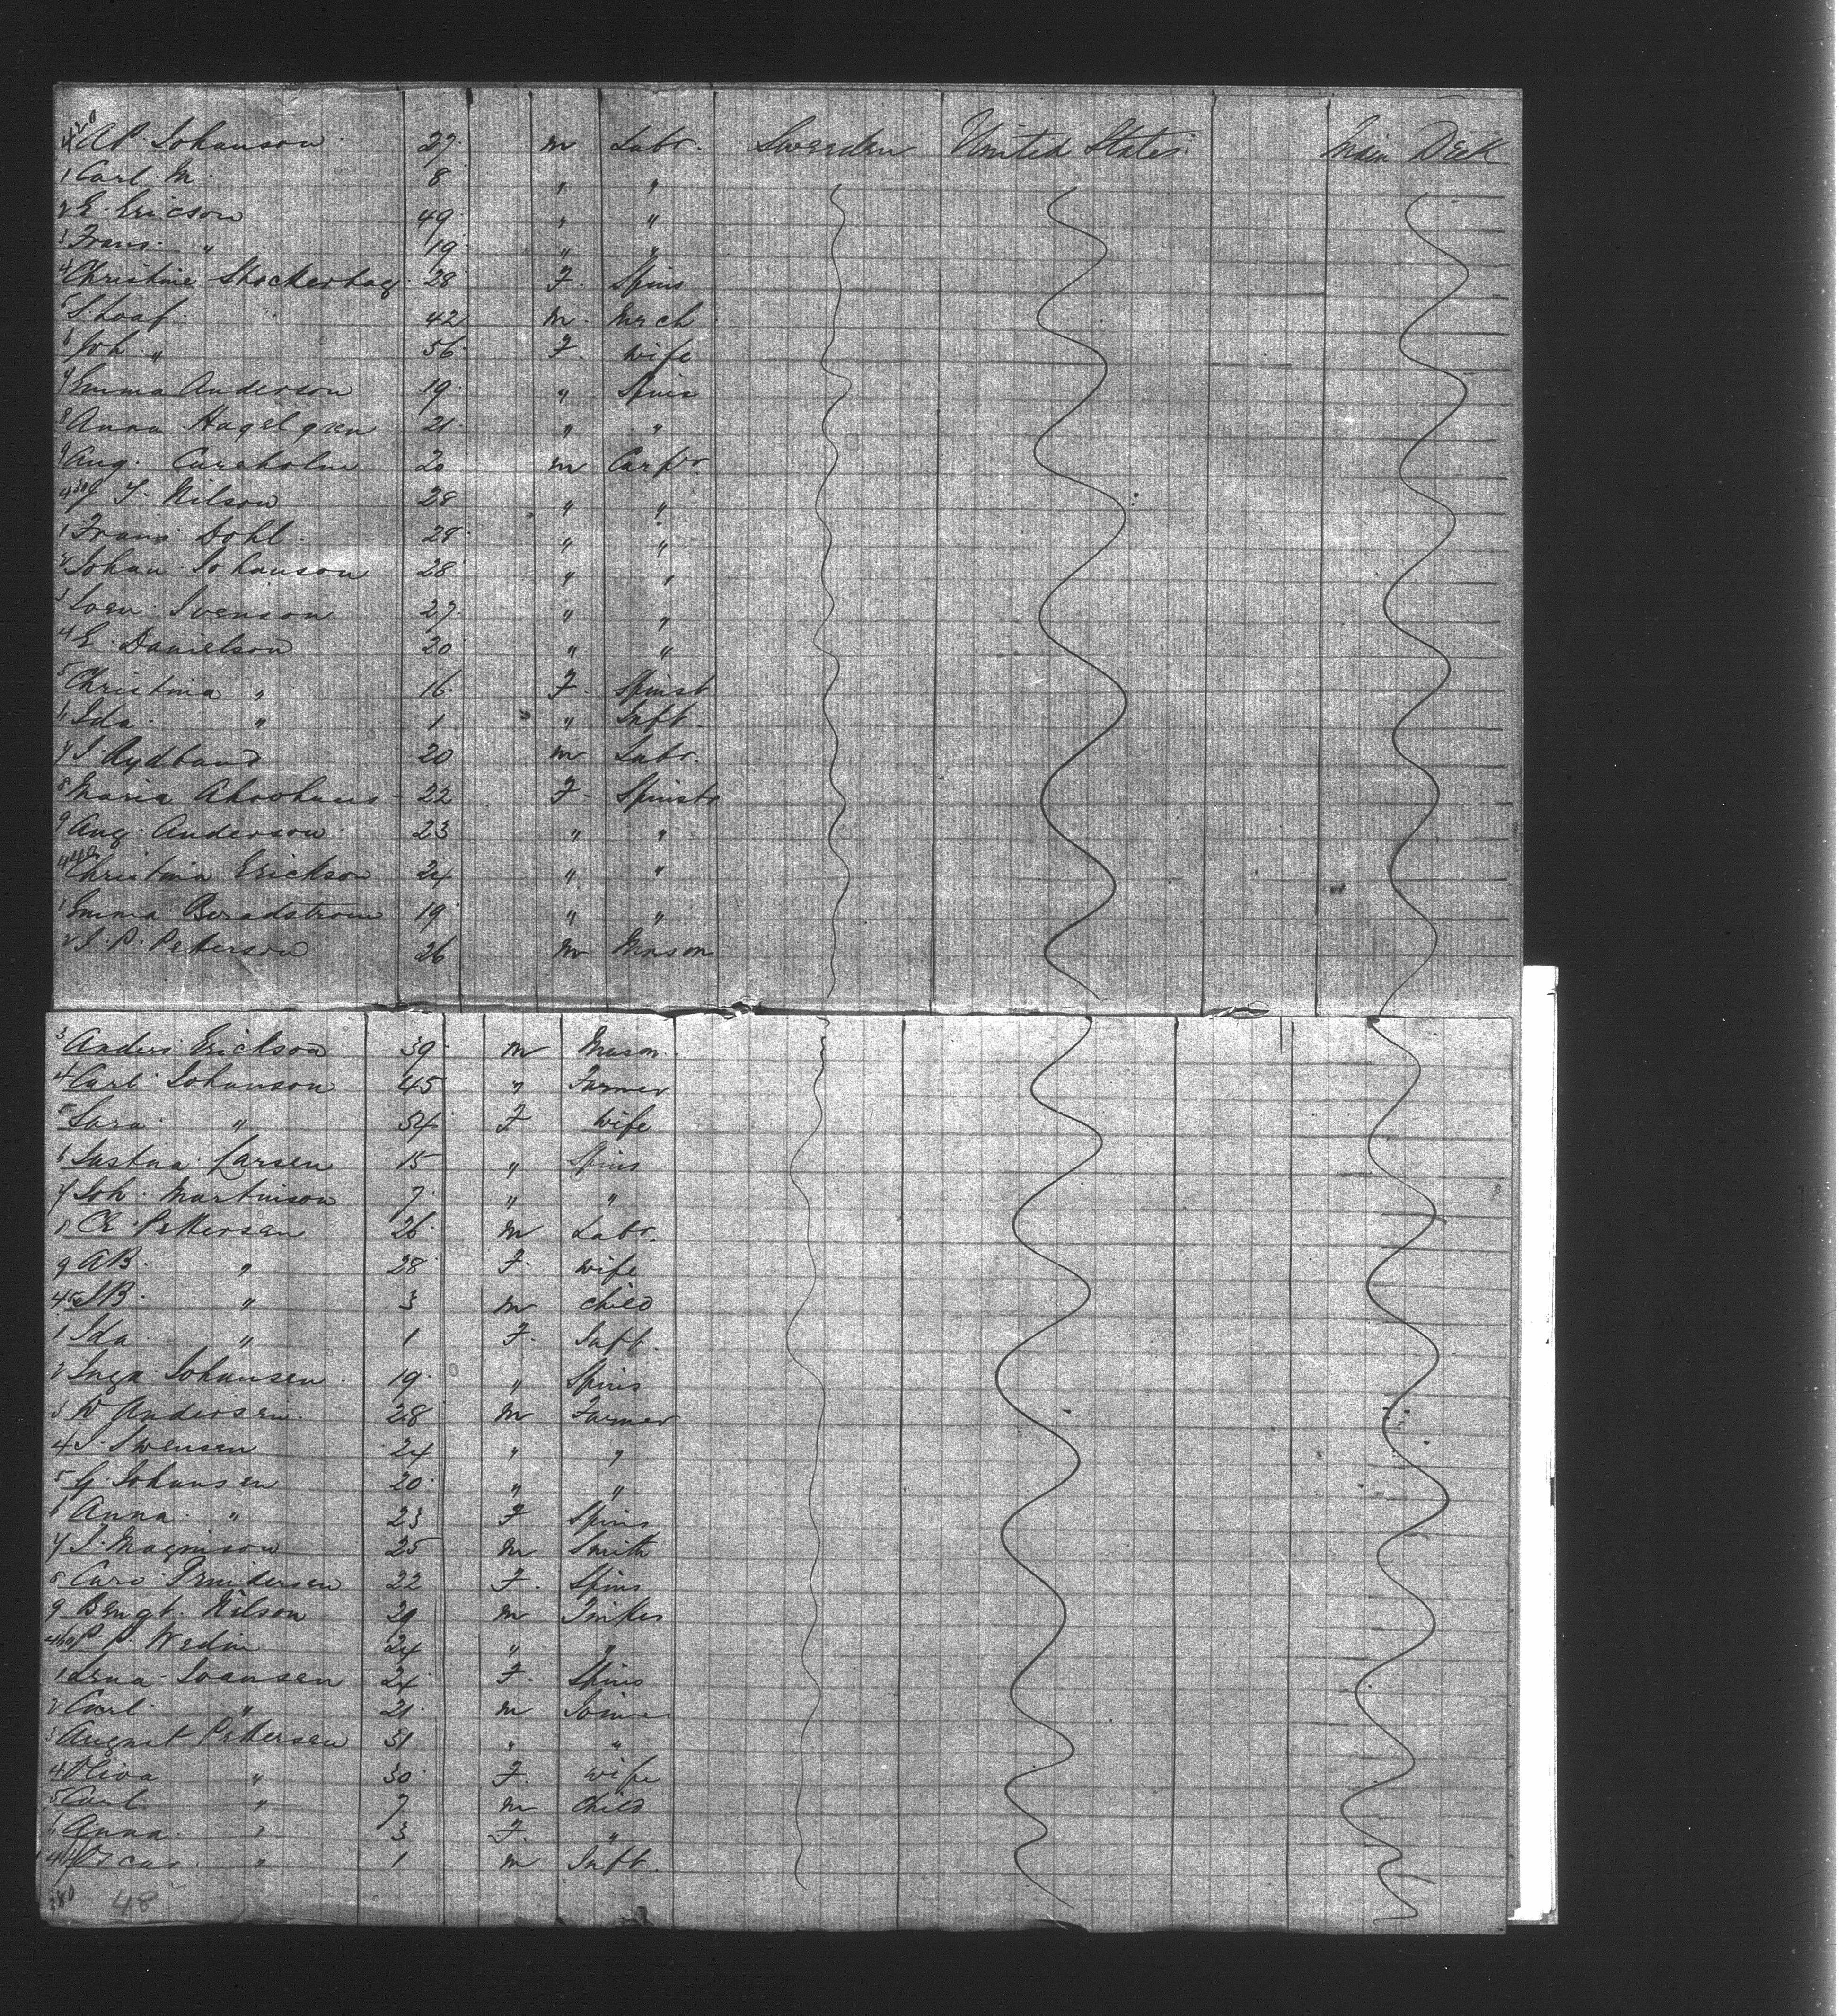 420 A P. Johanson 27 m Labr. Sweeden United States Main Deck
1 Carl M. 8 " "
2 E. Ericson 49 " "
3 Frans " 19 " "
4 Christine 28 F. Spins
5 42 m. Merch
6 Joh " 56 F. wife
7 Emma Anderson 19 " Spins
8 Anna Hagelgren 21 " "
9 Aug. 20 m Carpr
430 J Nilson 28 " "
1 Frans Dohl. 28 " "
2 Johan Johanson 28 " "
3 Sven Svenson 27 " "
4 E. Danielson 20 " "
5 Christina " 16 F. Spinst
6 Ida " 1 " Inft.
7 20 m Labr.
8 Maria 22 F. Spinstr
9 Aug. Anderson 23 " "
440 Christina Erickson 24 " "
1 Emma 19 " "
2 J. P. Peterson 26 m Mason
3 Anders Erickson 39 m Mason
4 Carl Johanson 45 " Farmer
5 Sara " 54 F wife
6 Larsen 15 " Spins
7 Joh. Martinson 7 " "
8 Pettersen 26 m Labr.
9 AB. " 28 F. wife
450 JB. " 3 m child
1 Ida " 1 F. Inft.
2 Inga Johansen 19 " Spins
3 W Andersen 28 m Farmer
4 J. Swensen 24 " "
5 G. Johansen 20 " "
6 Anna " 23 F Spins
7 J. Magnison 25 m Smith
8 Caro 22 F. Spins
9 Bengt. Nilson 29 m
460 P. P. Wedin 24 " "
1 Lena 24 F. Spins
2 Carl " 21 m Joiner
3 August Pettersen 31 " "
4 Oliva " 30 F. wife
5 Carl " 7 m Child
6 Anna " 3 F. "
467 Oscar " 1 m Inft.
48